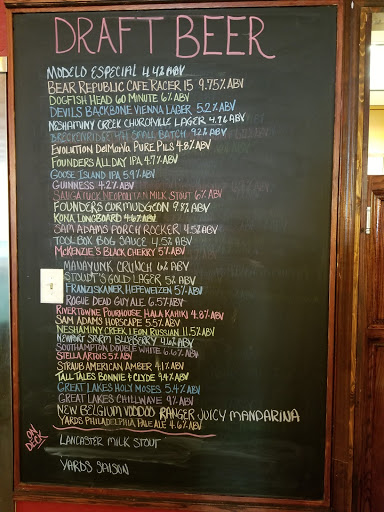 DRAFT BEER
MODELO ESPECIAL 4.4% ABV
BEAR REPUBLIC CAFE RACER 15 9.75% ABV
DOGFISH HEAD 60 MINUTE 6% ABV
DEVILS BACKBONE VIENNA LAGER 5.2% ABV
NESHAMINY CREEK CHURCHVILLE LAGER 4.9% ABV
BRECKENRIDGE SMALL BATCH 9.2% ABV
EVOLUTION DELMARVA PURE PILS 4.8% ABV
FOUNDERS ALL DAY IPA 4.7% ABV
GOOSE ISLAND IPA 5.9% ABV
GUINNESS 4.2% ABV
SAUGATUCK NEOPOLITAN MILK STOUT 6% ABV
FOUNDERS CURMUDGEON 9.8% ABV
KONA LONGBOARD 4.6% ABV
SAM ADAMS PORCH ROCKER 4.5% ABV
TOOL BOX BOG SAUCE 4.5% ABV
MCKENZIE'S BLACK CHERRY 5% ABV
MANAYUNK CRUNCH 6% ABV
STOUDT'S GOLD LAGER 5% ABV
FRANZISKANER HEFEWEIZEN 5% ABV
ROGUE DEAD GUY ALE 6.5% ABV
RIVERTOWNE POURHOUSE HALA KAHIKI 4.8% ABV
SAM ADAMS HOPSCAPE 5.5% ABV
NESHAMINY CREEK LEON RUSSIAN 11.5% ABV
NEWPORT STORM BLUEBERRY 4.6% ABV
SOUTHAMPTON DOUBLE WHITE 6.6% ABV
STELLA ARTOIS 5% ABV
STRAUB AMERICAN AMBER 4.1% ABV
TALL TALES BONNIE & CLYDE 9.4% ABV
GREAT LAKES HOLY MOSES 5.4% ABV
GREAT LAKES CHILLWAVE 9% ABV
NEW BELGIUM VOODOO RANGER JUICY MANDARINA
YARDS PHILADELPHIA PALE ALE 4.6% ABV
ON DECK
LANCASTER MILK STOUT
YARDS SAISON